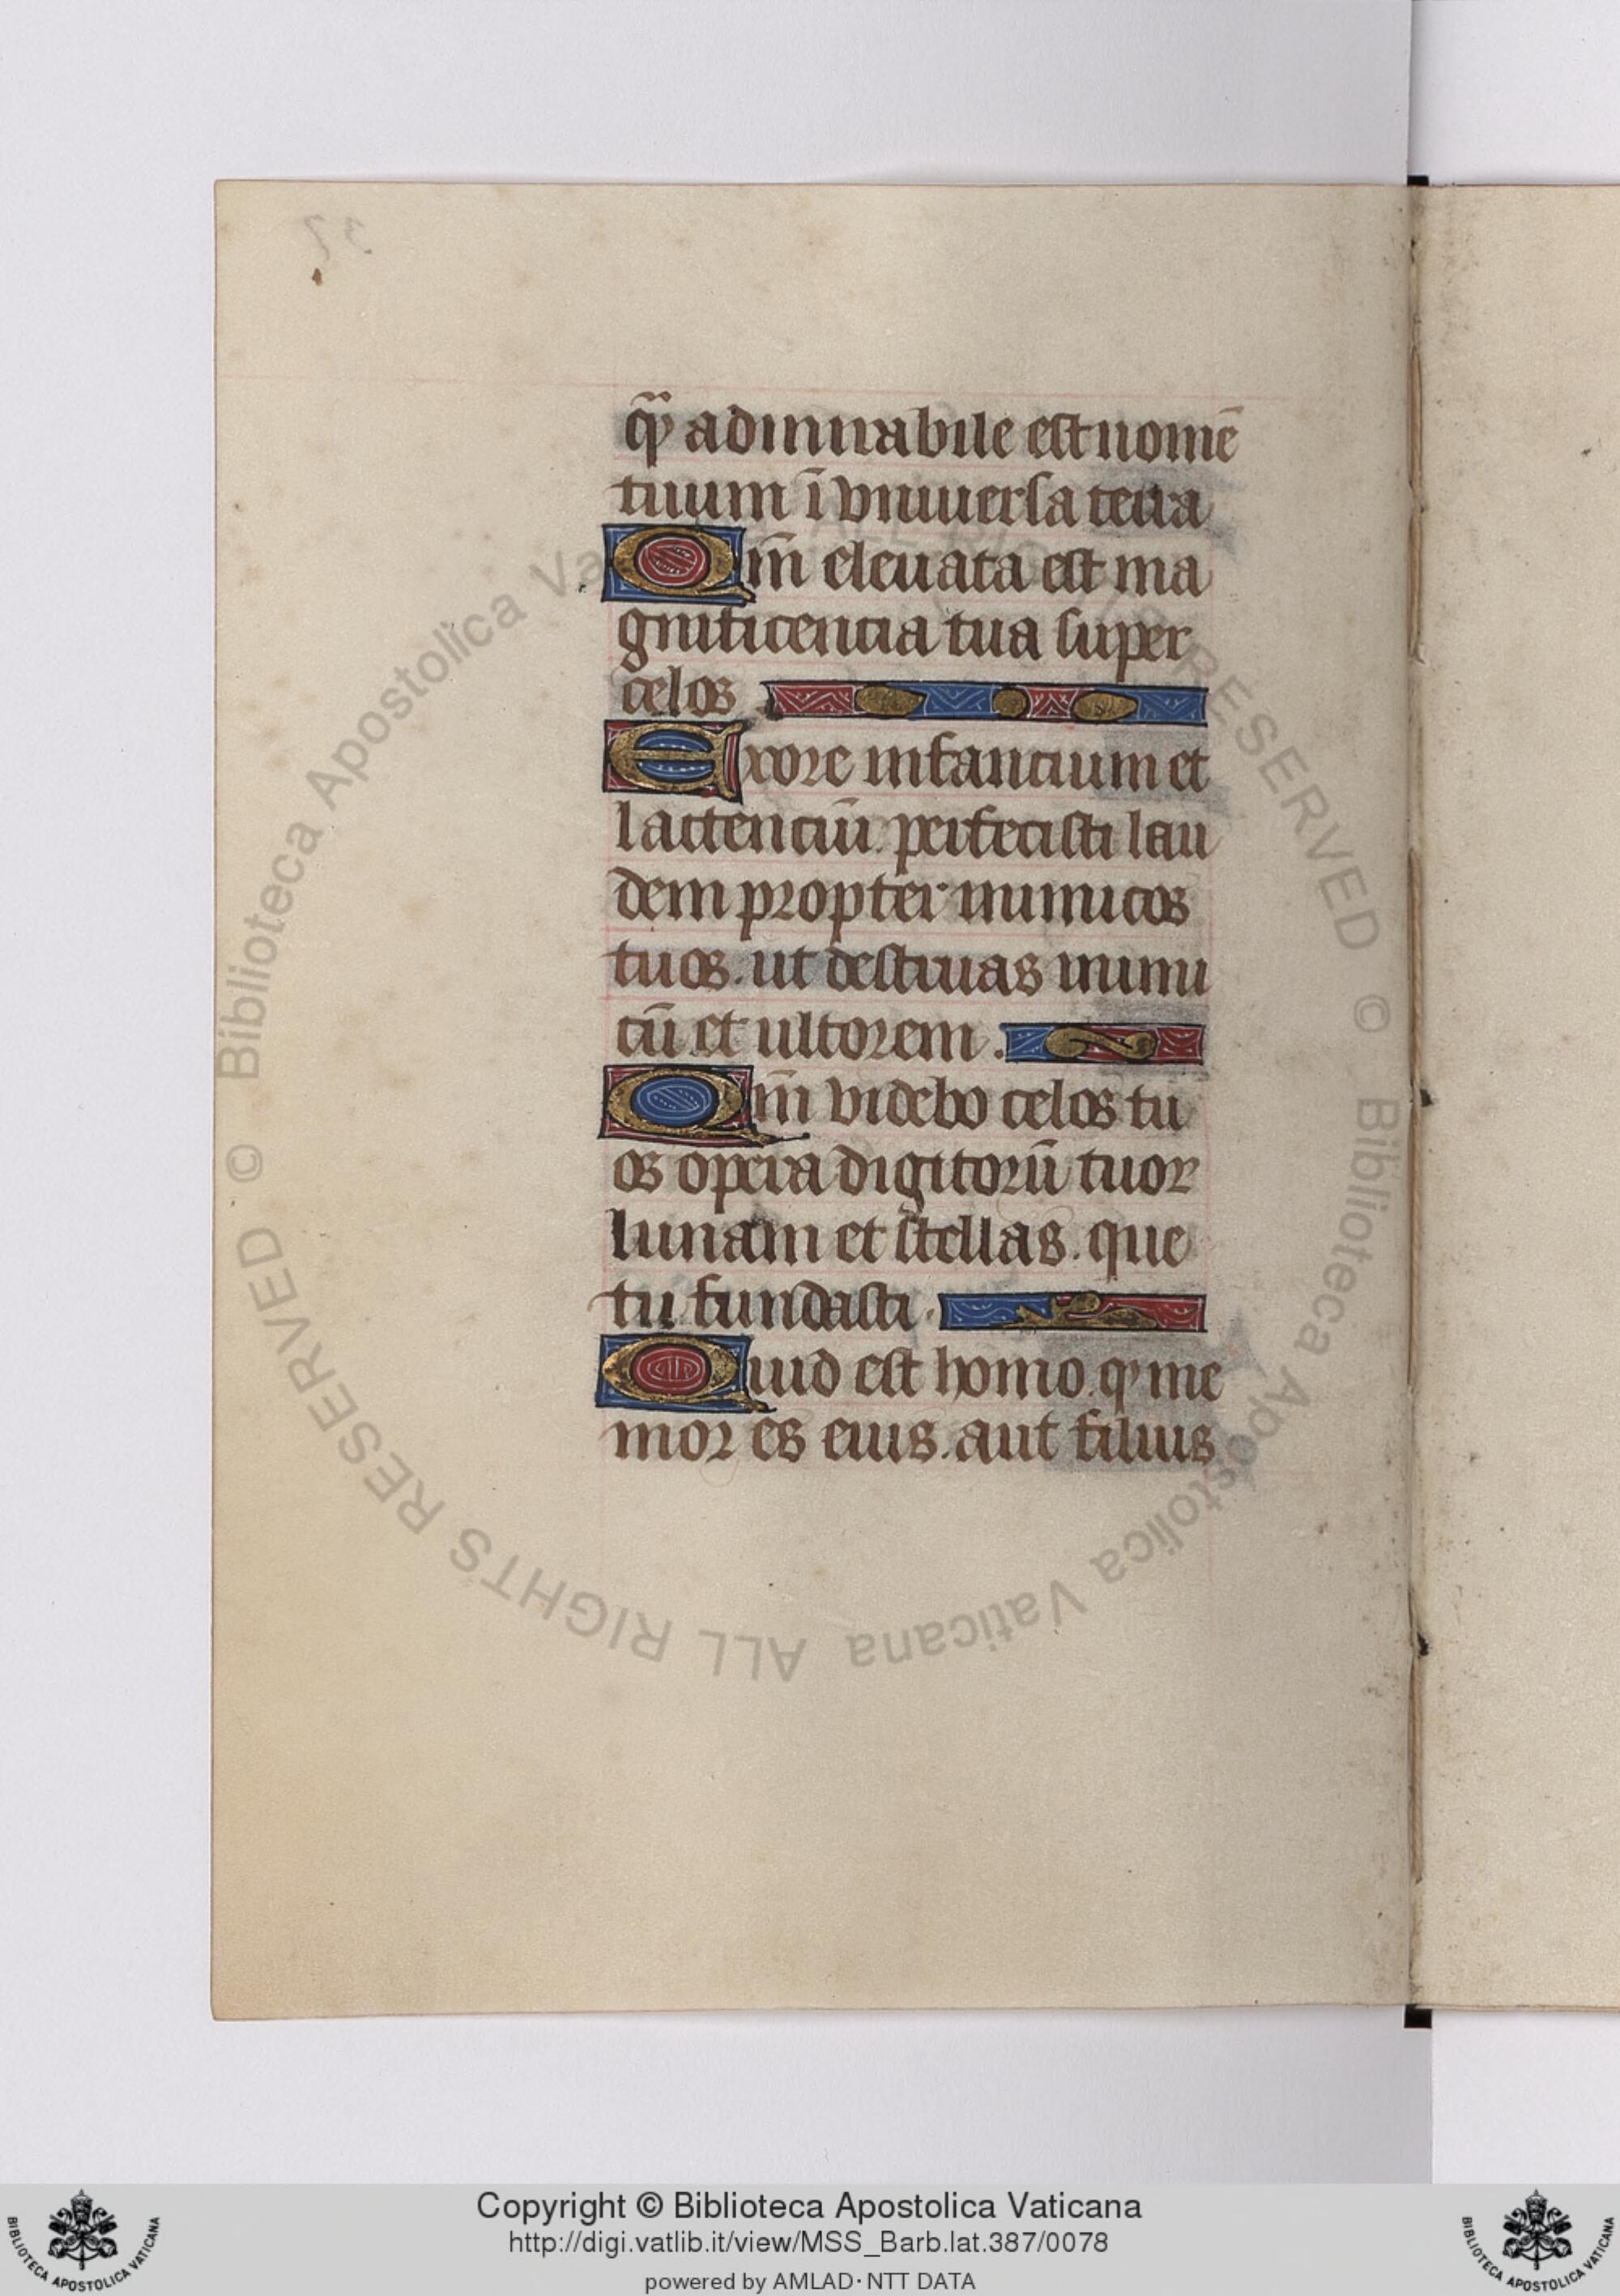 qͣ̃ admirabile est nomē
tuum ī vniuersa terra
Qm̄ eleuata est ma
gnificencia tua super
celos
Exore infancium et
lactenciū. perfecisti lau
dem propter inimicos
tuos. ut destruas inimi
cū et ultorem.
Qm̄ videbo celos tu
os opera digitorū tuor
lunam et stellas. que
tu fundasti.
Quid est homo. qͥ me
mor es eius. aut filius
© Biblioteca Apostolica Vaticana ALL RIGHTS RESERVED © Biblioteca Apostolica Vaticana ALL RIGHTS RESERVED
Copyright © Biblioteca Apostolica Vaticana
http://digi.vatlib.it/view/MSS_Barb.lat.387/0078
powered by AMLAD·NTT DATA
BIBLIOTECA APOSTOLICA VATICANA
BIBLIOTECA APOSTOLICA VATICANA